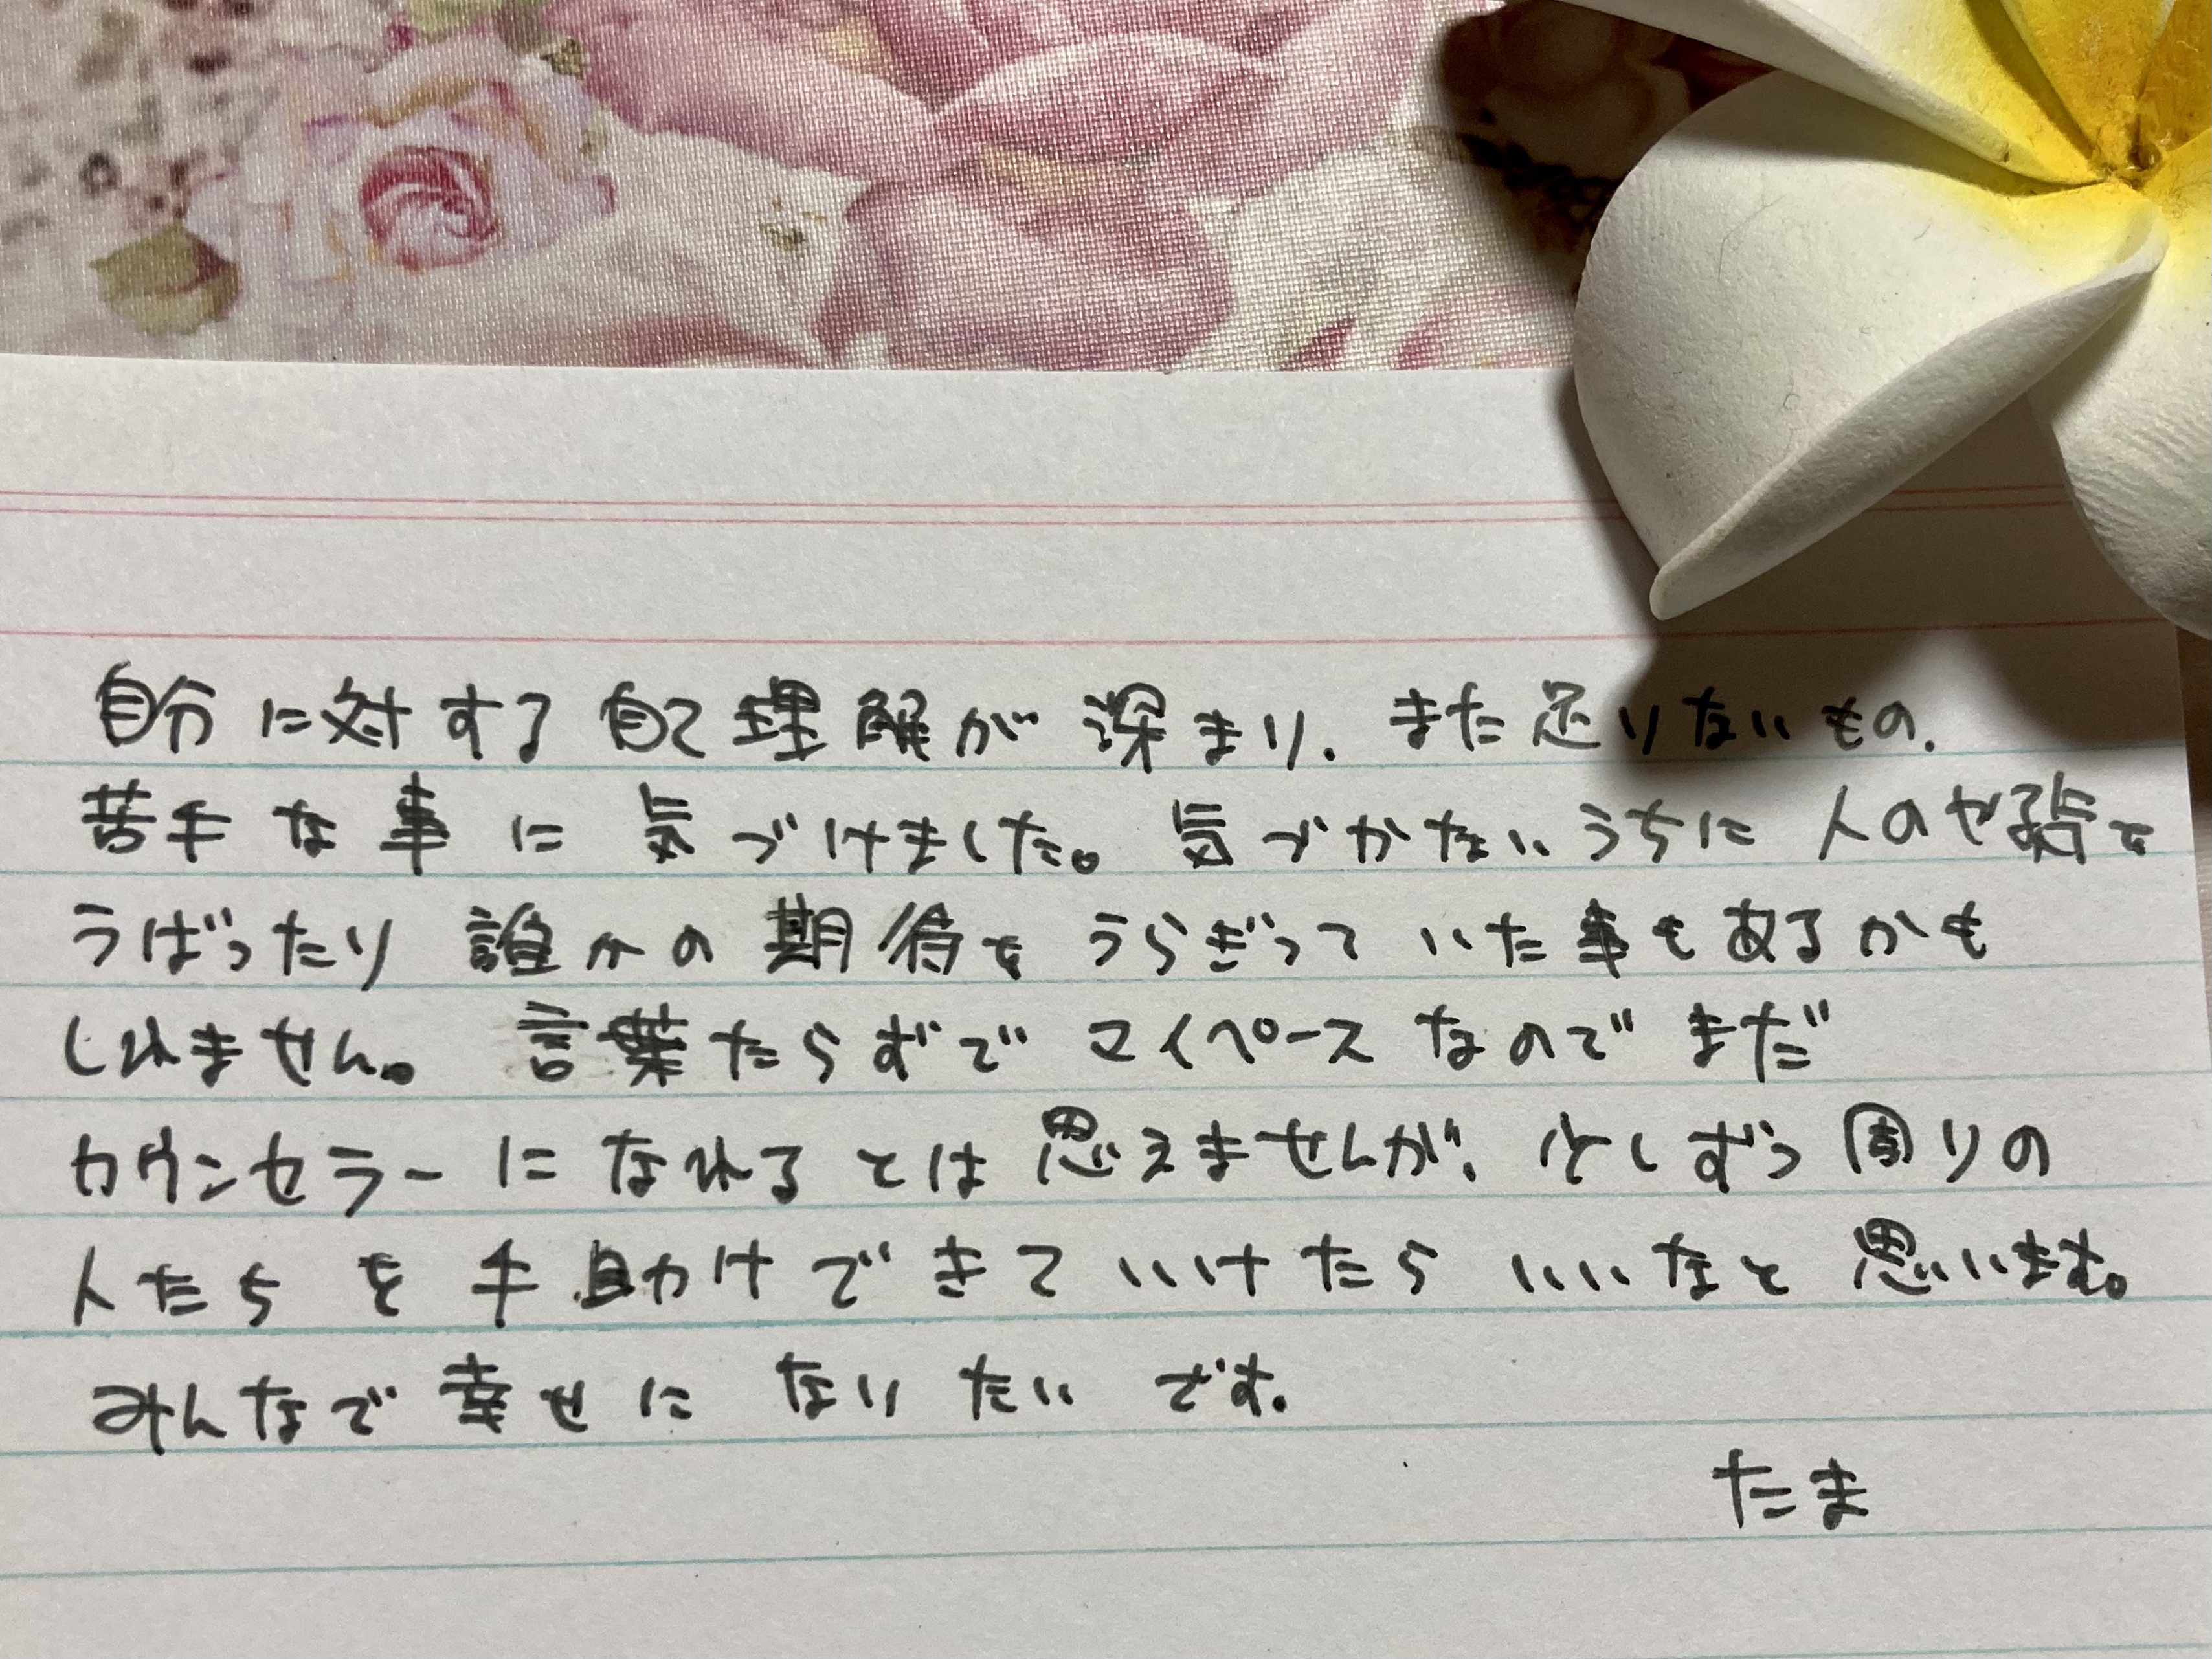 自分に対する自己理解が深まり、また足りないもの、
苦手な事に気づけました。気づかないうちに人のせ
うばったり誰かの期待をうらぎっていた事もあるかも
しれません。言葉たらずでマイペースなのでまだ
カウンセラーになれるとは思えませんが、少しずつ周りの
人たちを手助けできていけたらいいなと思います。
みんなで幸せになりたいです。
たま